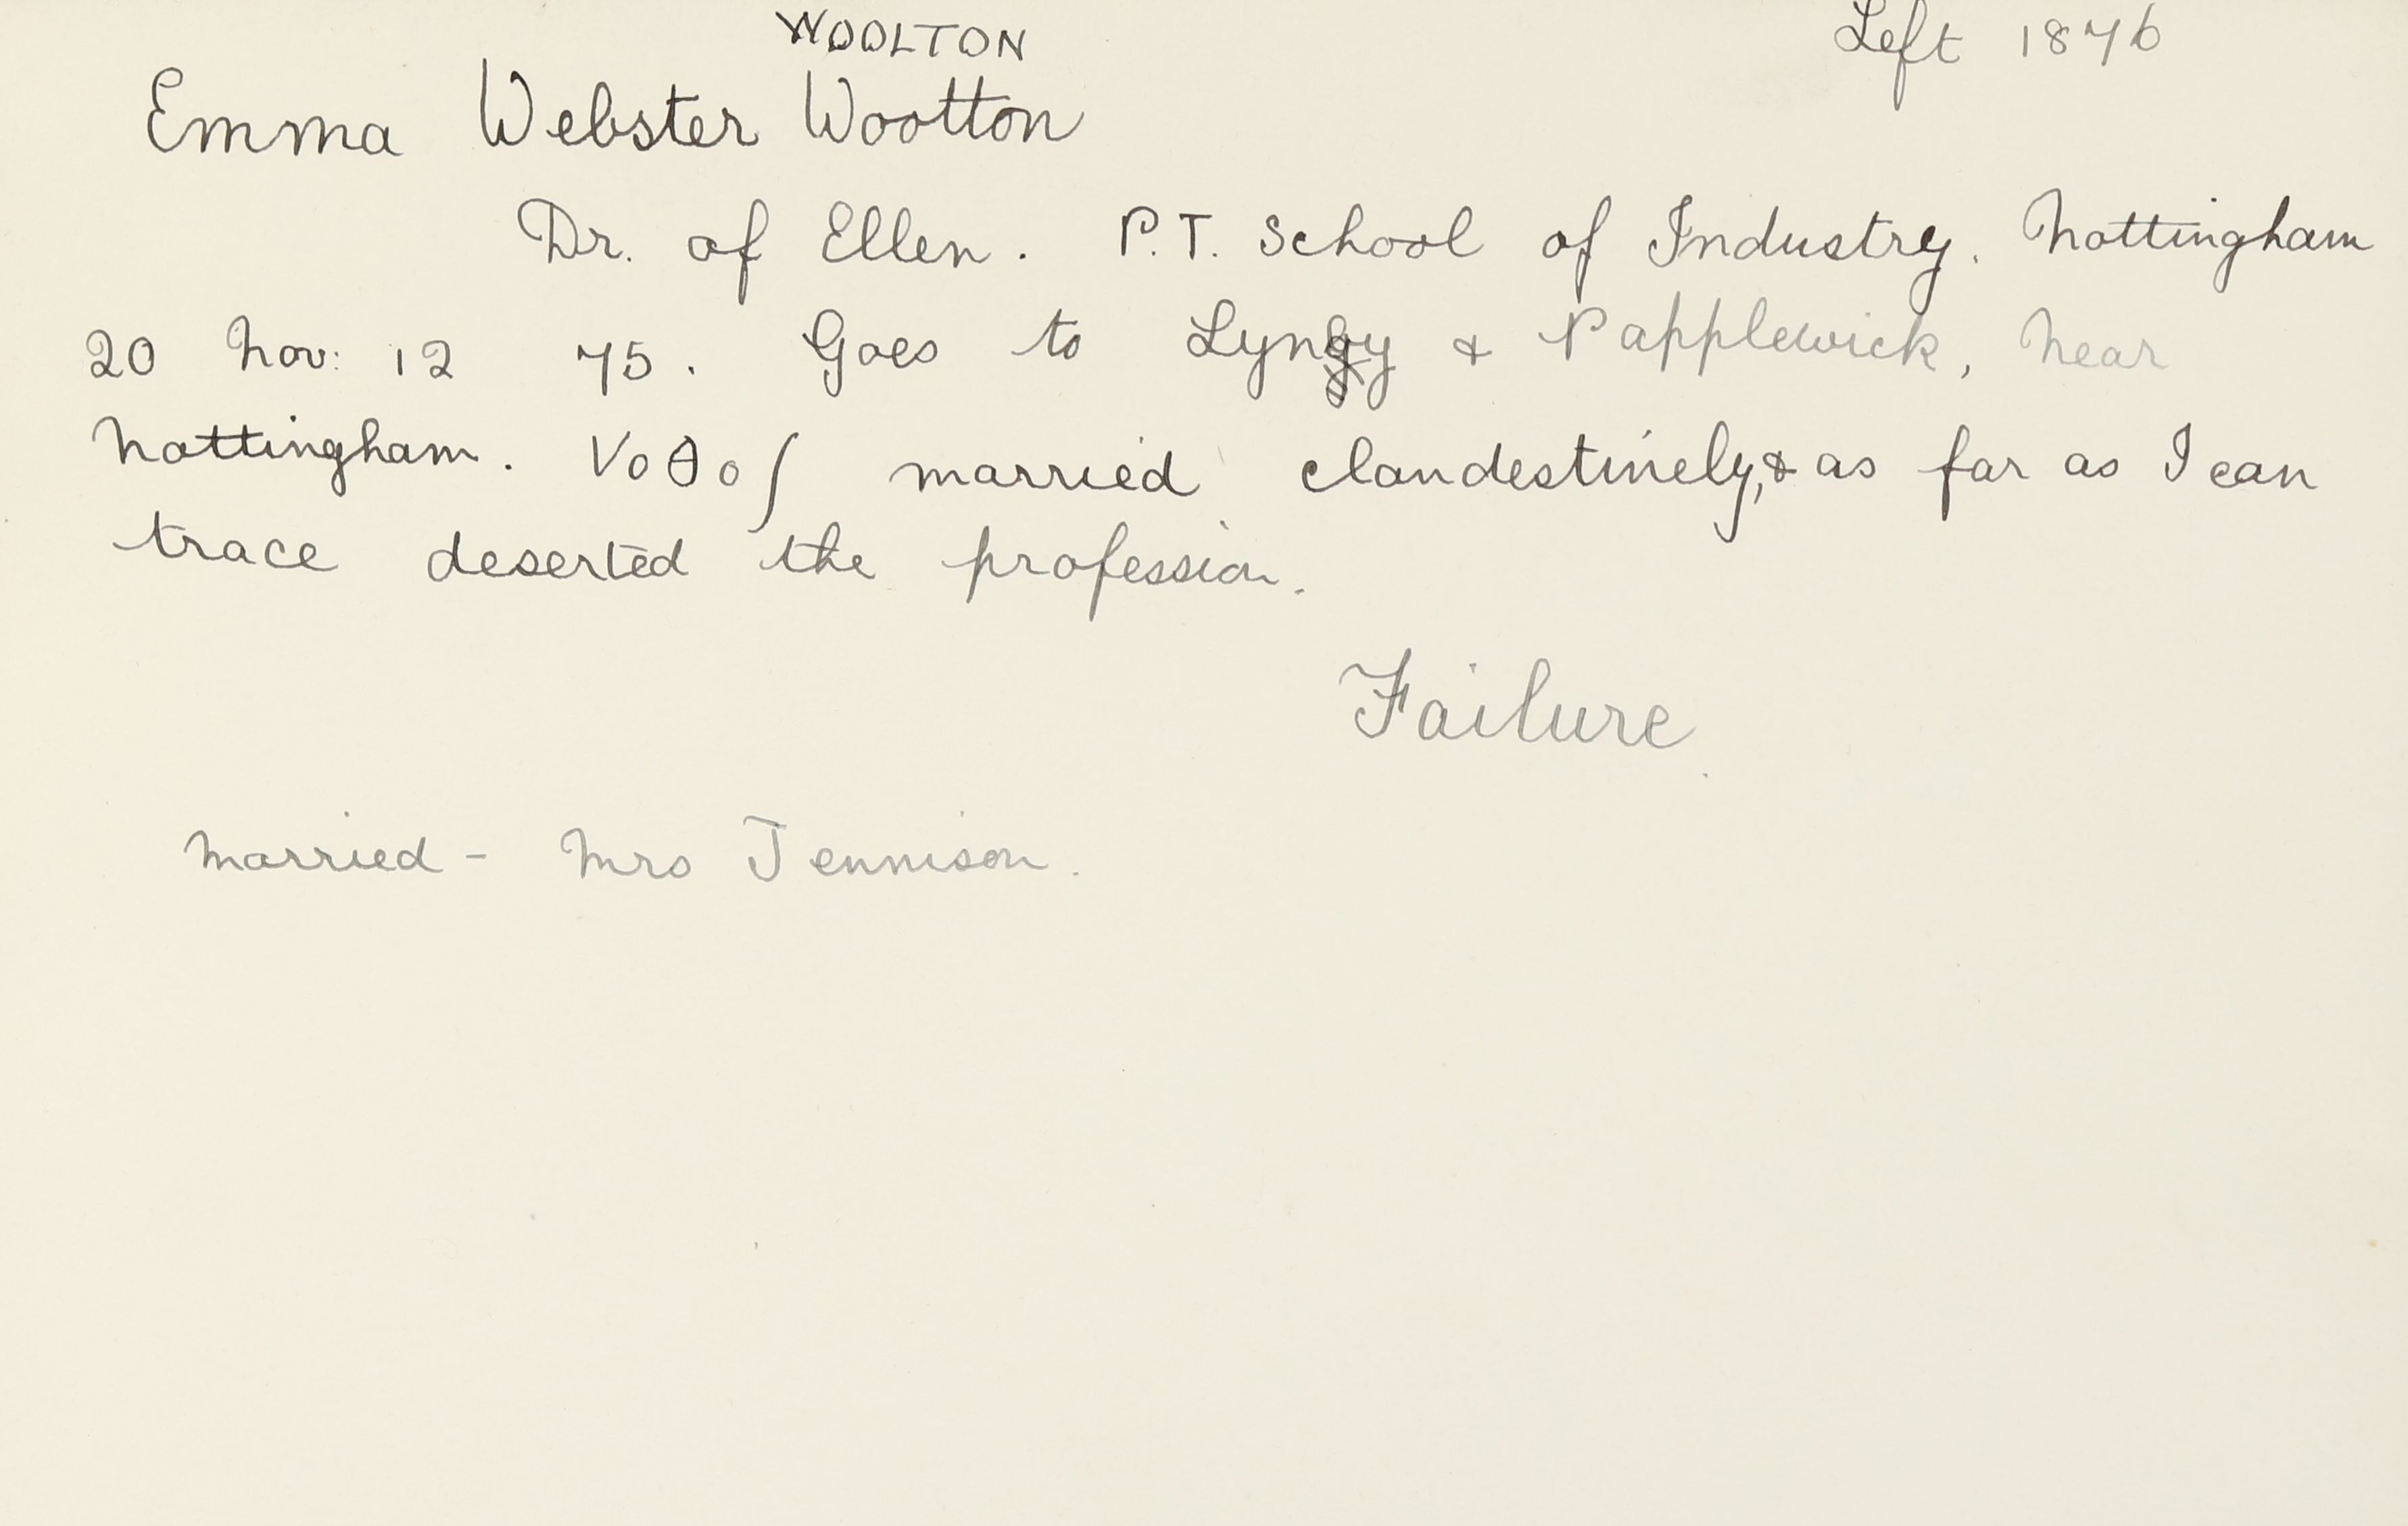 WOOLTON Left 1876
Emma Webster Wootton
Dr. of Ellen. P.T. School of Industry. Nottingham
20 Nov: 12 75. Goes to Lynby & Papplewick, near
Nottingham. married clandestinely, & as far as I can
trace deserted the profession.
Failure
Married - Mrs Jennison.